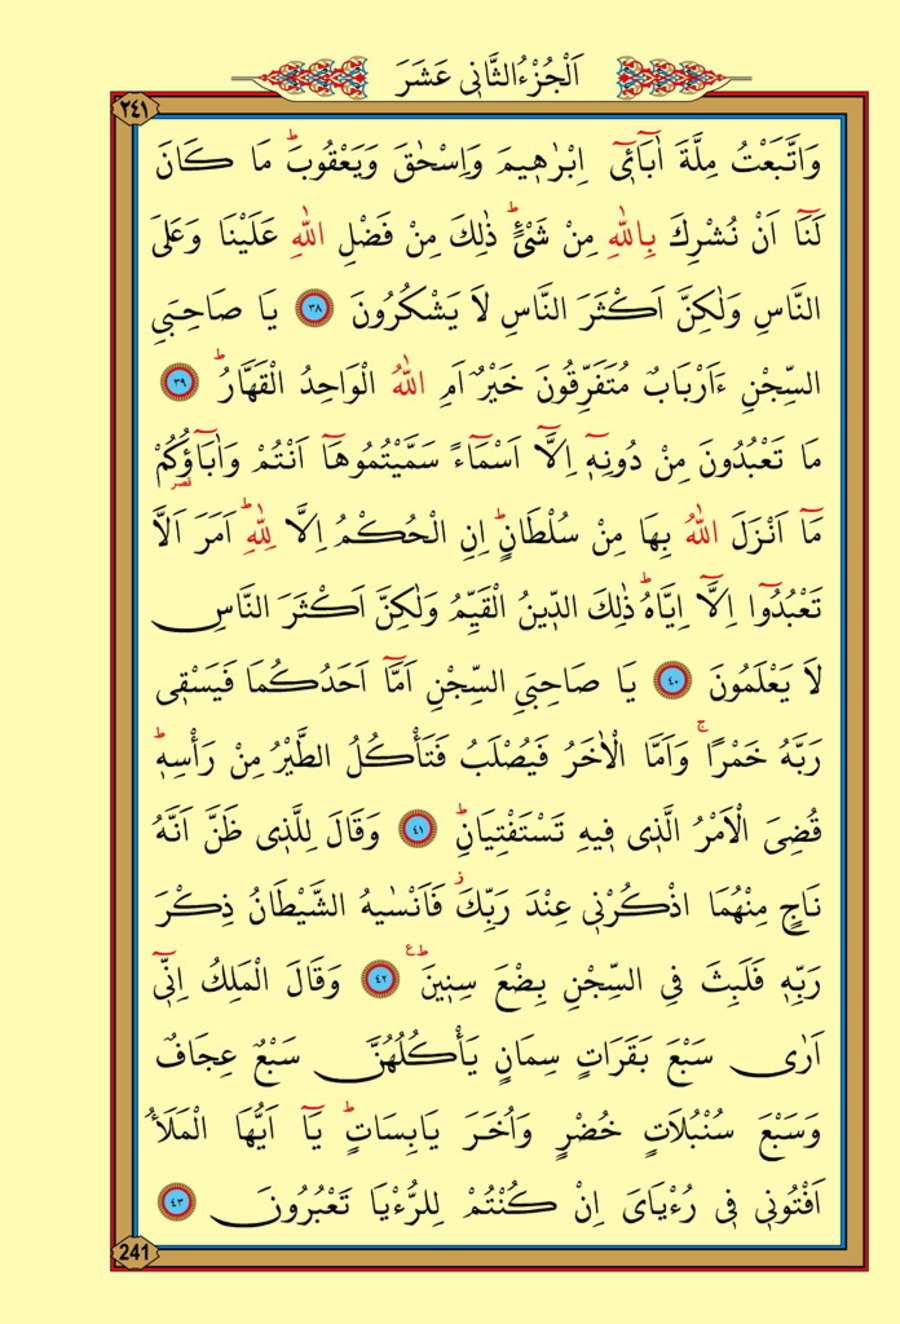 اَلْجُزْءُالثَّانٖى عَشَرَ
٢٤١
وَاتَّبَعْتُ مِلَّةَ اٰبَٓائٖٓى اِبْرٰهٖيمَ وَاِسْحٰقَ وَيَعْقُوبَؕ مَا كَانَ
لَنَٓا اَنْ نُشْرِكَ بِاللّٰهِ مِنْ شَىْءٍؕ ذٰلِكَ مِنْ فَضْلِ اللّٰهِ عَلَيْنَا وَعَلَى
النَّاسِ وَلٰكِنَّ اَكْثَرَ النَّاسِ لَا يَشْكُرُونَ ﴿٣٨﴾ يَا صَاحِبَىِ
السِّجْنِ ءَاَرْبَابٌ مُتَفَرِّقُونَ خَيْرٌ اَمِ اللّٰهُ الْوَاحِدُ الْقَهَّارُؕ ﴿٣٩﴾
مَا تَعْبُدُونَ مِنْ دُونِهٖٓ اِلَّٓا اَسْمَٓاءً سَمَّيْتُمُوهَٓا اَنْتُمْ وَاٰبَٓاؤُكُمْ
مَٓا اَنْزَلَ اللّٰهُ بِهَا مِنْ سُلْطَانٍؕ اِنِ الْحُكْمُ اِلَّا لِلّٰهِؕ اَمَرَ اَلَّا
تَعْبُدُٓوا اِلَّٓا اِيَّاهُؕ ذٰلِكَ الدّٖينُ الْقَيِّمُ وَلٰكِنَّ اَكْثَرَ النَّاسِ
لَا يَعْلَمُونَ ﴿٤٠﴾ يَا صَاحِبَىِ السِّجْنِ اَمَّٓا اَحَدُكُمَا فَيَسْقٖى
رَبَّهُ خَمْرًاۚ وَاَمَّا الْاٰخَرُ فَيُصْلَبُ فَتَأْكُلُ الطَّيْرُ مِنْ رَأْسِهٖؕ
قُضِىَ الْاَمْرُ الَّذٖى فٖيهِ تَسْتَفْتِيَانِؕ ﴿٤١﴾ وَقَالَ لِلَّذٖى ظَنَّ اَنَّهُ
نَاجٍ مِنْهُمَا اذْكُرْنٖى عِنْدَ رَبِّكَؗ فَاَنْسٰيهُ الشَّيْطَانُ ذِكْرَ
رَبِّهٖ فَلَبِثَ فِى السِّجْنِ بِضْعَ سِنٖينَؕ ﴿٤٢﴾ وَقَالَ الْمَلِكُ اِنّٖٓى
اَرٰى سَبْعَ بَقَرَاتٍ سِمَانٍ يَأْكُلُهُنَّ سَبْعٌ عِجَافٌ
وَسَبْعَ سُنْبُلَاتٍ خُضْرٍ وَاُخَرَ يَابِسَاتٍؕ يَٓا اَيُّهَا الْمَلَأُ
اَفْتُونٖى فٖى رُءْيَاىَ اِنْ كُنْتُمْ لِلرُّءْيَا تَعْبُرُونَ ﴿٤٣﴾
241